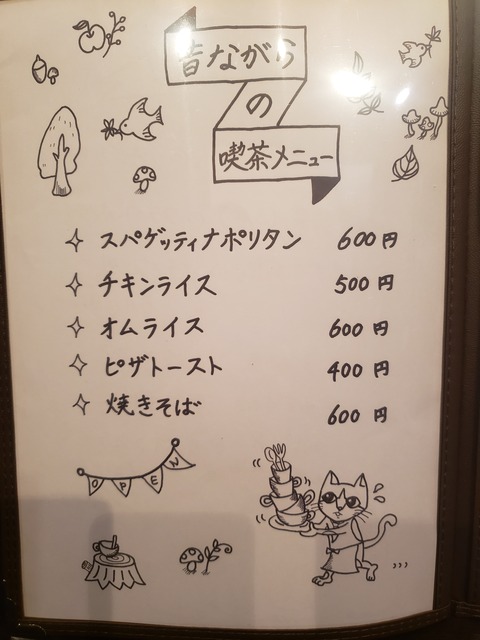 昔ながら
の
喫茶メニュー
スパゲッティナポリタン 600円
チキンライス 500円
オムライス 600円
ピザトースト 400円
焼きそば 600円
OPEN